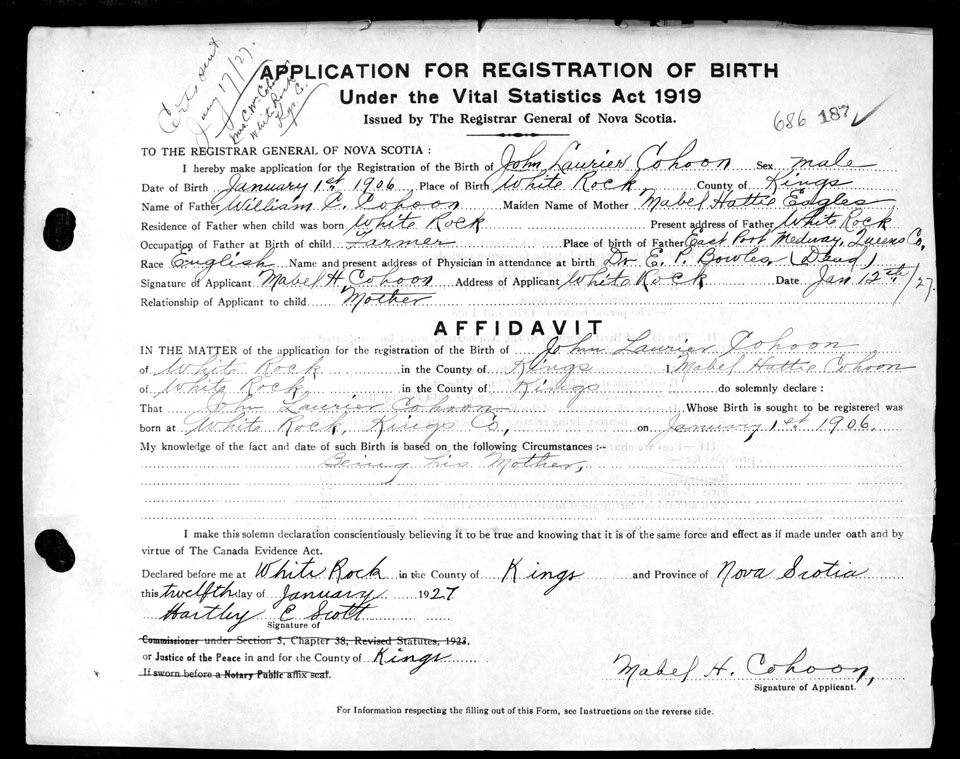 Cert sent
Jany 17/27.
Mrs. C. W. Cohoon
White Rock
Kgs. C.
APPLICATION FOR REGISTRATION OF BIRTH
Under the Vital Statistics Act 1919
Issued by The Registrar General of Nova Scotia.
686 187 ✓
TO THE REGISTRAR GENERAL OF NOVA SCOTIA :
I hereby make application for the Registration of the Birth of John Laurier Cohoon Sex male
Date of Birth January 1st. 1906 Place of Birth White Rock, County of Kings
Name of Father William C. Cohoon Maiden Name of Mother Mabel Hattie Eagles
Residence of Father when child was born White Rock Present address of Father White Rock
Occupation of Father at Birth of child Farmer Place of birth of Father East Port Medway, Queens Co.
Race English Name and present address of Physician in attendance at birth Dr. E. P. Bowles, (Dead)
Signature of Applicant Mabel H Cohoon Address of Applicant White Rock Date Jan 12th/27.
Relationship of Applicant to child Mother
AFFIDAVIT
IN THE MATTER of the application for the registration of the Birth of John Laurier Cohoon
of White Rock in the County of Kings I, Mabel Hattie Cohoon
of White Rock in the County of Kings do solemnly declare :
That John Laurier Cohoon Whose Birth is sought to be registered was
born at White Rock, Kings Co., on January 1st. 1906.
My knowledge of the fact and date of such Birth is based on the following Circumstances :-
Being his Mother,
I make this solemn declaration conscientiously believing it to be true and knowing that it is of the same force and effect as if made under oath and by
virtue of The Canada Evidence Act.
Declared before me at White Rock in the County of Kings and Province of Nova Scotia
this twelfth day of January 1927
Hartley C Scott
Signature of
Commissioner under Section 5, Chapter 38, Revised Statutes, 1923,
or Justice of the Peace in and for the County of Kings
If sworn before a Notary Public affix seal.
Mabel H. Cohoon,
Signature of Applicant.
For Information respecting the filling out of this Form, see Instructions on the reverse side.